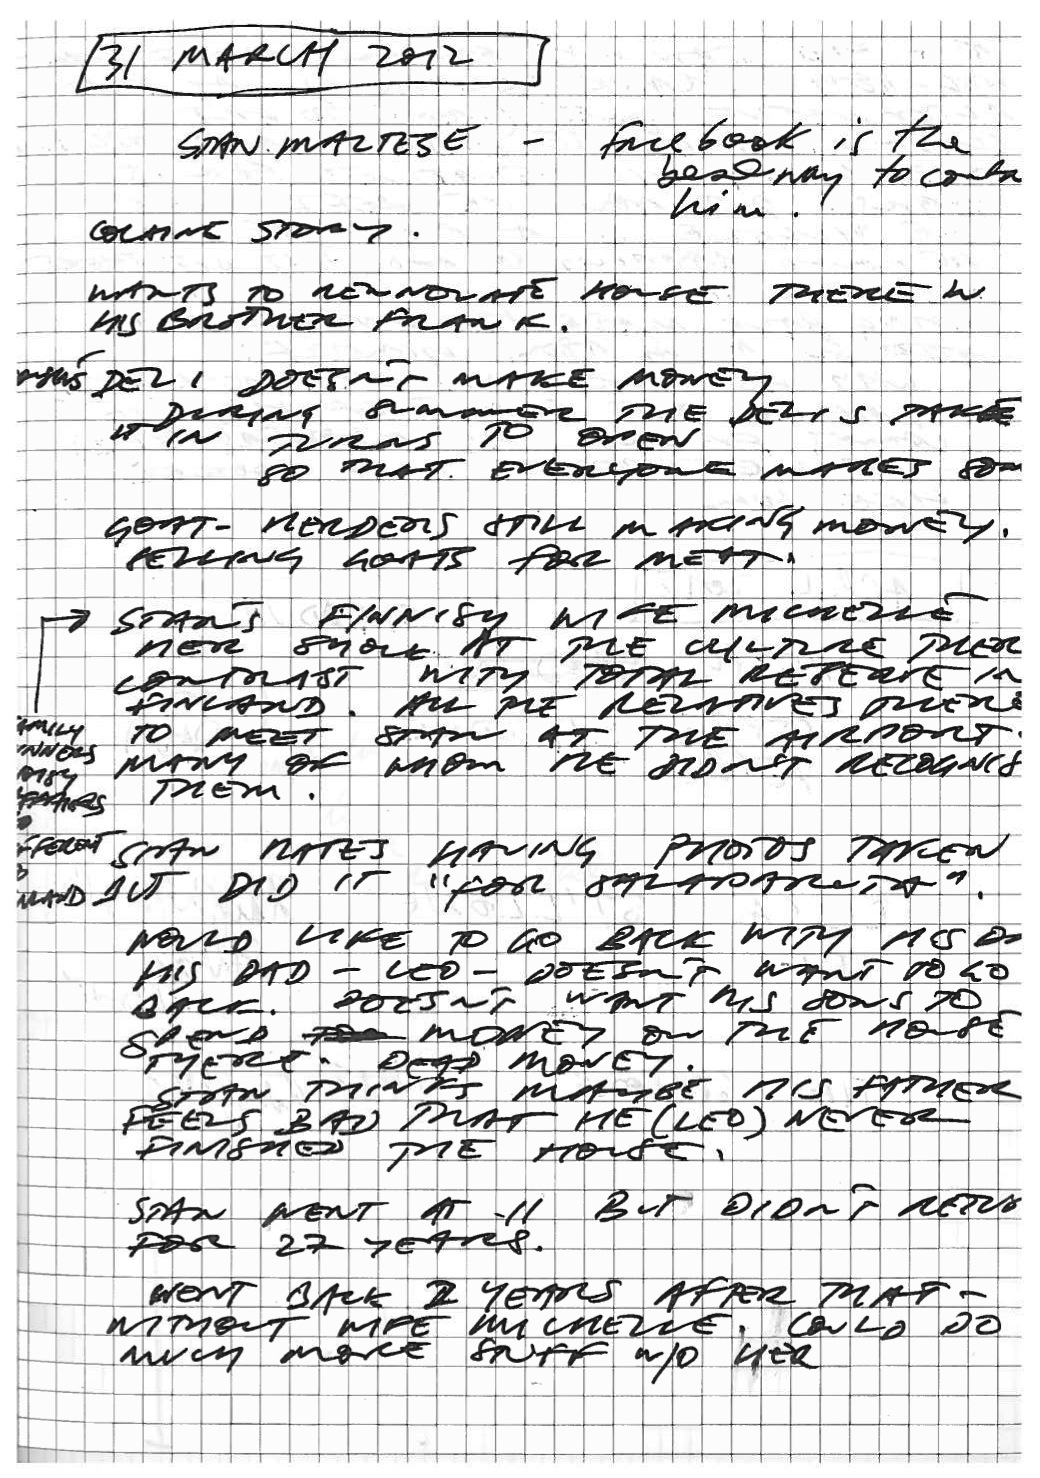 31 MARCH 2012
STAN MALTESE - Facebook is the
best way to conta
him.
COCAINE STORY.
WANTS TO RENNOVATE HOUSE THERE W
HIS BROTHER FRANK.
DELI DOESN'T MAKE MONEY
DURING SUMMER THE DELIS TAKE
IT IN TURNS TO OPEN
SO THAT EVERYONE MAKES SOM
GOAT-HERDERS STILL MAKING MONEY.
SELLING GOATS FOR MEAT.
STAN'S FINNISH WIFE MICHELLE
HER SHOCK AT THE CULTURE THER
CONTRAST WITH TOTAL RESERVE IN
FINLAND. ALL THE RELATIVES THERE
TO MEET STAN AT THE AIRPORT.
MANY OF WHOM HE DIDN'T RECOGNIS
THEM.
AMILY
INNERS
OISY
FFAIRS
FFERENT
NLAND
STAN HATES HAVING PHOTOS TAKEN
BUT DID IT "FOR SALAPARUTA".
WOULD LIKE TO GO BACK WITH HIS DA
HIS DAD - LEO - DOESN'T WANT TO GO
BACK. DOESN'T WANT HIS SONS TO
SPEND MONEY ON THE HOUSE
THERE. DEAD MONEY.
STAN THINKS MAYBE HIS FATHER
FEELS BAD THAT HE (LEO) NEVER
FINISHED THE HOUSE.
STAN WENT AT 11 BUT DIDN'T RETUR
FOR 27 YEARS.
WENT BACK 2 YEARS AFTER THAT -
WITHOUT WIFE MICHELLE. COULD DO
MUCH MORE STUFF W/O HER